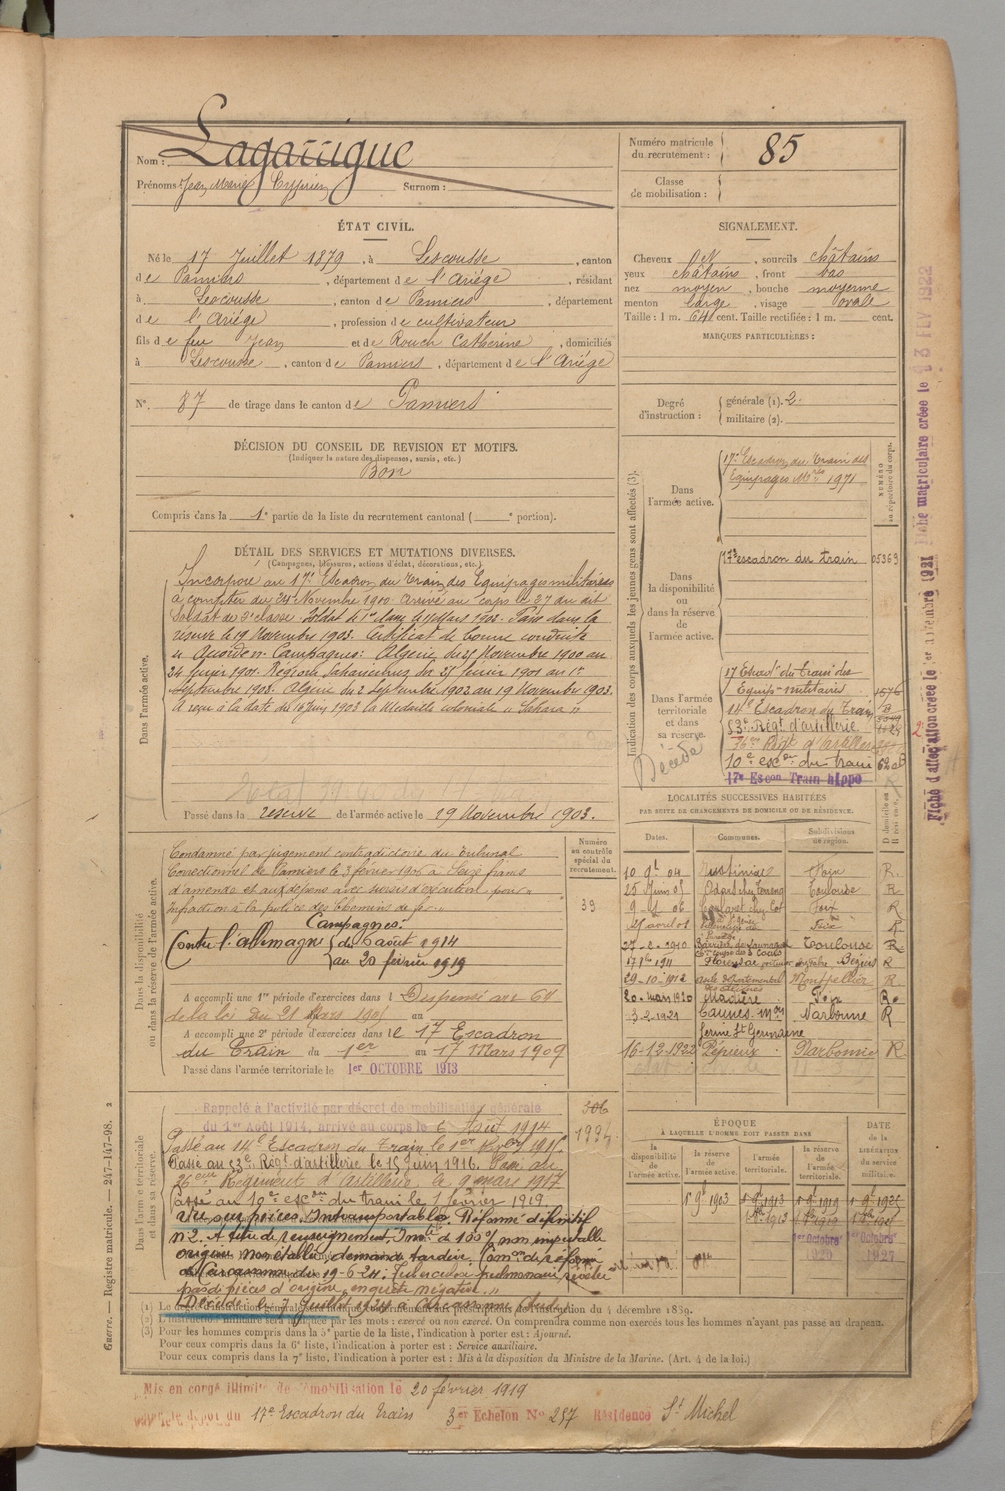 Nom : Lagarrigue
Prénoms : Jean Marie Cyprien Surnom :
Numéro matricule du recrutement : 85
Classe de mobilisation :
ÉTAT CIVIL.
Né le 17 Juillet 1879, à Lescousse, canton
de Pamiers, département de l'Ariége, résidant
à Lescousse, canton de Pamiers, département
de l'Ariége, profession de cultivateur
fils de feu Jean et de Rouch Catherine, domiciliés
à Lescousse, canton de Pamiers, département de l'Ariége
N°. 37 de tirage dans le canton de Pamiers
SIGNALEMENT.
Cheveux , sourcils châtains
yeux châtains, front bas
nez moyen, bouche moyenne
menton large, visage ovale
Taille : 1 m. 64 cent. Taille rectifiée : 1 m. cent.
MARQUES PARTICULIÈRES :
Degré d'instruction : générale (1). 2.
militaire (2).
DÉCISION DU CONSEIL DE REVISION ET MOTIFS.
(Indiquer la nature des dispenses, sursis, etc.)
Bon
Compris dans la 1e partie de la liste du recrutement cantonal ( e portion).
DÉTAIL DES SERVICES ET MUTATIONS DIVERSES.
(Campagnes, blessures, actions d'éclat, décorations, etc.)
Dans l'armée active.
Incorporé au 17e Escadron du Train des Equipages militaires
à compter du 24 Novembre 1900 Arrivé au corps le 27 du dit
Soldat de 2e classe. Soldat de 1re classe le 11 Mars 1902. Passé dans la
réserve le 19 Novembre 1903. Certificat de bonne conduite
Campagnes : Algérie du 25 Novembre 1900 au
24 février 1901. Régions Sahariennes du 25 février 1901 au 1er
Septembre 1902. Algérie du 2 Septembre 1902 au 19 Novembre 1903.
A reçu à la date du 16 Juin 1903 la Médaille coloniale "Sahara"
Passé dans la reserve de l'armée active le 19 Novembre 1903.
Indication des corps auxquels les jeunes gens sont affectés (3).
NUMÉRO au répertoire du corps.
Dans l'armée active.
17e Escadron du Train des
Equipages Mres 1971
Dans la disponibilité ou dans la réserve de l'armée active.
17e escadron du train 05363
Dans l'armée territoriale et dans sa réserve.
17 Escadn du Train des
Equip-militaires 1576
14e Escadron du Train
53e Régt d'artillerie
36e Régt d'Artillerie
10e escon du train
17e Escon Train hippo
Décédé
Fiche d'affectation créée le 1er novembre 1921
Fiche matriculaire créée le 13 FEV 1922
Dans la disponibilité ou dans la réserve de l'armée active.
Numéro au contrôle spécial du recrutement.
39
Condamné par jugement contradictoire du Tribunal
Correctionnel de Pamiers le 3 février 1905 à Seize francs
d'amende et aux dépens avec sursis d'exécution pour
infraction à la police des Chemins de fer
Campagnes :
Contre l'allemagne du 6 août 1914
au 20 février 1919
A accompli une 1re période d'exercices dans l Dispensé art 6
de la loi du 21 Mars 1905 au
A accompli une 2e période d'exercices dans le 17 Escadron
du Train du 1er au 17 Mars 1909
Passé dans l'armée territoriale le 1er OCTOBRE 1913
LOCALITÉS SUCCESSIVES HABITÉES
PAR SUITE DE CHANGEMENTS DE DOMICILE OU DE RÉSIDENCE.
Dates. Communes. Subdivisions de région.
10 9bre 04 Foix R.
25 Juin 05 Toulouse R
9 1 06 Foix R
27-2-1910 Toulouse R
1911 Béziers R
29-10-1912 asile départemental Montpellier R
20-mars 1920 Madière Foix R.
3-2-1921 Caunes Narbonne R
ferme St Germaine
16-12-1922 Pépieux Narbonne R
Dans l'armée territoriale et dans sa réserve.
306
Rappelé à l'activité par décret de mobilisation générale
du 1er Août 1914, arrivé au corps le 6 Août 1914
Passé au 14e Escadron du Train le 1er
Passé au 53e Régt d'artillerie le 15 Juin 1916. Passé au
36eme Régiment d'Artillerie le 9 mars 1917
Passé au 10e escon du train le 1 février 1919
Vu sur pièces. Intransportable. Réformé définitif
n°2. A titre de renseignement, Invté de 100% non imputable
origine non établie, demande tardive. Comon de réforme
de Carcassonne du 19-6-24. Tuberculose pulmonaire
pas de pièces d'origine, enquête négative."
Décédé le 7 Juillet 1924 à Carcassonne Aude
ÉPOQUE
À LAQUELLE L'HOMME DOIT PASSER DANS
la disponibilité de l'armée active. la réserve de l'armée active. l'armée territoriale. la réserve de l'armée territoriale.
DATE de la LIBÉRATION du service militaire.
Guerre. — Registre matricule. — 247-147-98. 2
(2) L'instruction militaire sera indiquée par les mots : exercé ou non exercé. On comprendra comme non exercés tous les hommes n'ayant pas passé au drapeau.
(3) Pour les hommes compris dans la 5e partie de la liste, l'indication à porter est : Ajourné.
Pour ceux compris dans la 6e liste, l'indication à porter est : Service auxiliaire.
Pour ceux compris dans la 7e liste, l'indication à porter est : Mis à la disposition du Ministre de la Marine. (Art. 4 de la loi.)
Mis en congé illimité de démobilisation le 20 février 1919
dépôt du 17e Escadron du Train 3er Echelon N° 257 Résidence St Michel